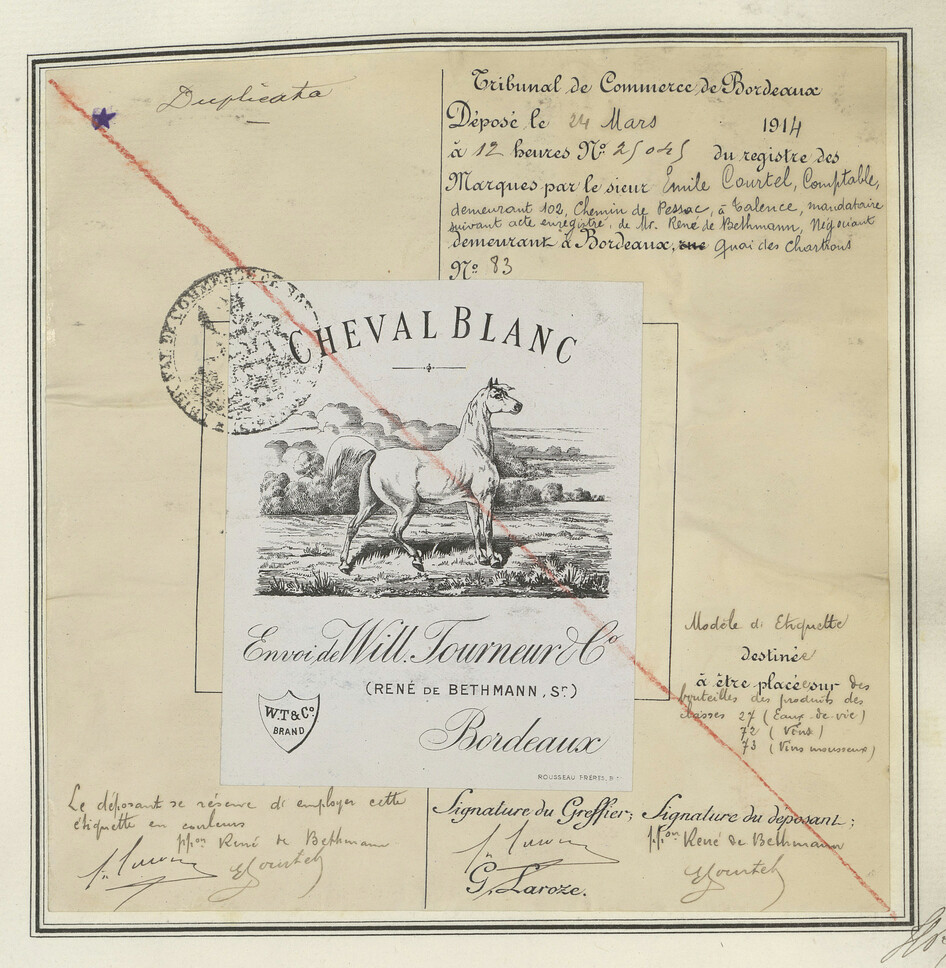 Duplicata
Tribunal de Commerce de Bordeaux
Déposé le 24 Mars 1914
à 12 heures No. 25045 du registre des
Marques par le sieur Emile Courtel, Comptable,
demeurant 102, Chemin de Pessac, à Talence, mandataire
suivant acte enregistré, de Mr. René de Bethmann, Négociant
demeurant à Bordeaux, rue Quai des Chartrons
No. 83
TRIBUNAL DE COMMERCE DE
CHEVAL BLANC
Envoi de Will. Tourneur & Co
(RENÉ DE BETHMANN, Sr)
W.T & Co
BRAND
Bordeaux
ROUSSEAU FRÈRES, Bx
Modèle d'Etiquette
destinée
à être placée sur des
bouteilles des produits des
classes 27 (Eaux-de-vie)
72 (Vins)
73 (Vins mousseux)
Le déposant se réserve d'employer cette
étiquette en couleurs
p/pon René de Bethmann
ECourtel
Signature du Greffier; Signature du déposant;
G. Laroze.
p/pon René de Bethmann
ECourtel